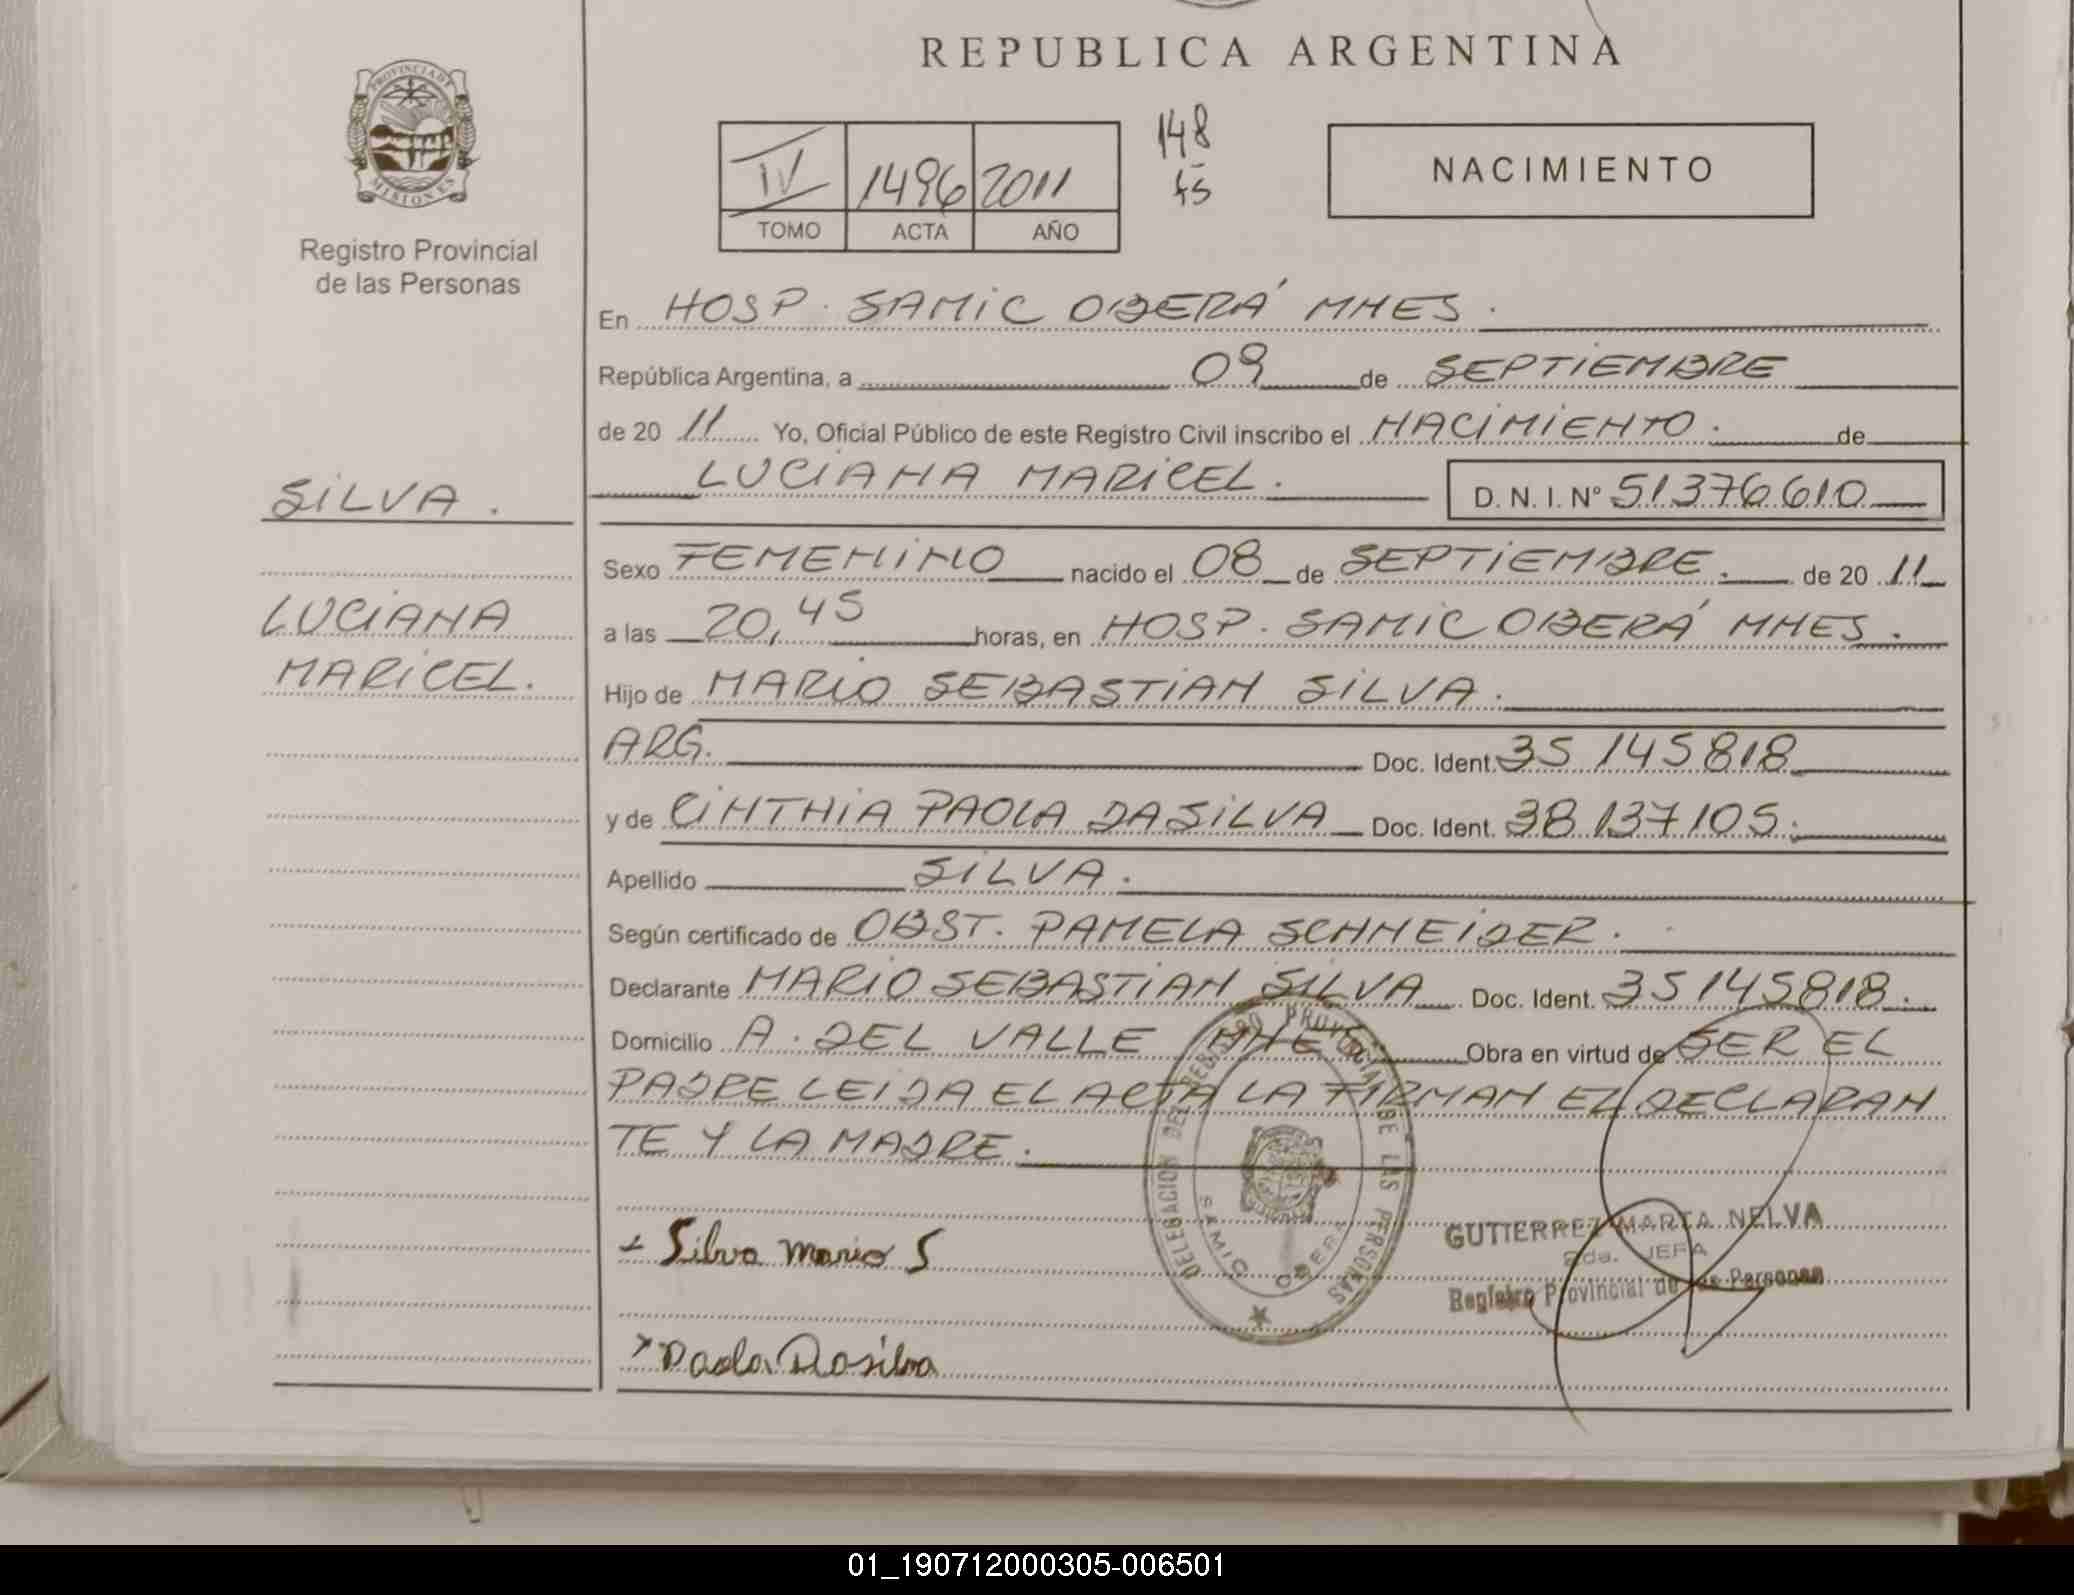 REPUBLICA ARGENTINA
PROVINCIA DE
MISIONES
Registro Provincial
de las Personas
IV 1496 2011
TOMO ACTA AÑO
148
45
NACIMIENTO
En HOSP. SAMIC OBERÁ MNES.
República Argentina, a 09 de SEPTIEMBRE
de 20 11 Yo, Oficial Público de este Registro Civil inscribo el NACIMIENTO. de
LUCIANA MARICEL. D. N. I. Nº 51376610
SILVA.
LUCIANA
MARICEL.
Sexo FEMENINO nacido el 08 de SEPTIEMBRE. de 20 11
a las 20,45 horas, en HOSP. SAMIC OBERÁ MNES.
Hijo de MARIO SEBASTIAN SILVA.
ARG. Doc. Ident. 35145818
y de CINTHIA PAOLA DASILVA Doc. Ident. 38137105.
Apellido SILVA.
Según certificado de OBST. PAMELA SCHNEIDER.
Declarante MARIO SEBASTIAN SILVA Doc. Ident. 35145818.
Domicilio A. DEL VALLE MNES Obra en virtud de SER EL
PADRE LEIDA EL ACTA LA FIRMAN EL DECLARAN
TE Y LA MADRE.
DELEGACION DEL REGISTRO PROVINCIAL DE LAS PERSONAS
SAMIC OBERA
Silva Mario S
Paola Dasilva
GUTIERREZ MARTA NELVA
2da. JEFA
Registro Provincial de las Personas
01_190712000305-006501